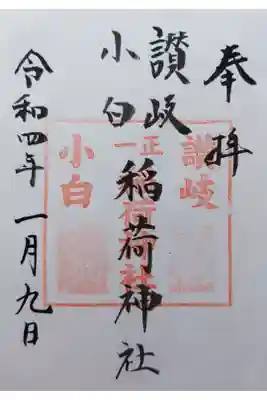 奉拝
讃岐
小白
稲荷神社
令和四年一月九日
讃岐
正一
稲荷社
小白